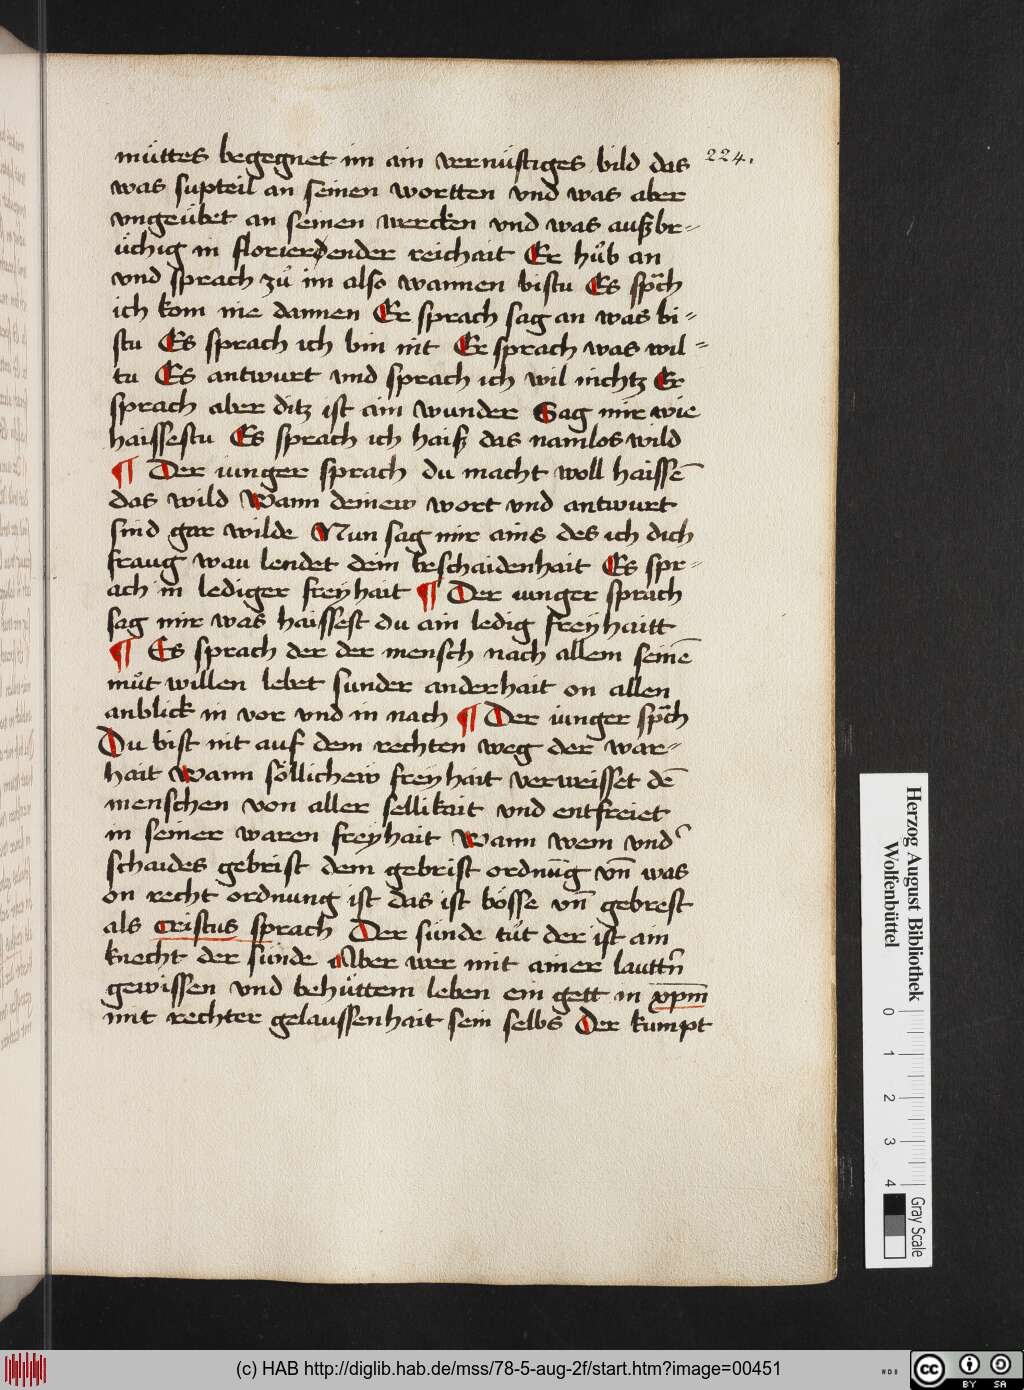 müttes begegnet im ain vernüftiges bild das
224.
was supteil an seinen wortten vnd was aber
vngeübet an seinen wercken vnd was außbr=
üchig in florierdender reichait Er hůb an
vnd sprach zů im also wannen bistu Es sp̄ch
ich kom nie dannen Er sprach sag an was bi=
stu Es sprach ich bin nit Er sprach was wil=
tu Es antwurt vnd sprach ich wil nichtz Er
sprach aber ditz ist ain wunder Sag mir wie
haissestu Es sprach ich haiß das namlos wild
¶ Der iunger sprach du macht woll haissē
das wild Wann deinew wort vnd antwurt
sind gar wilde Nun sag mir ains des ich dich
fraug wau lendet dein beschaidenhait Es spr=
ach in lediger freyhait ¶ Der iunger sprach
sag mir was haissest du ain ledig freyhaitt
¶ Es sprach der der mensch nach allem seinē
můt willen lebet sunder anderhait on allen
anblick in vor vnd in nach ¶ Der iunger sp̄ch
Du bist nit auf dem rechten weg der war=
hait Wann söllichew freyhait verweisset dē
menschen von aller sellikait vnd entfreiet
in seiner waren freyhait Wann wem vnd͛
schaides gebrist dem gebrist ordnūg vn̄ was
on recht ordnung ist das ist bösse vn̄ gebrest
als cristus sprach Der sünde tůt der ist ain
knecht der sünde Aber wer mit ainer lauttn̄
gewissen vnd behüttem leben ein gett in xp̄m
mit rechter gelaussenhait sein selbs Der kumpt
Herzog August Bibliothek
Wolfenbüttel
0
1
2
3
4
Gray Scale
(c) HAB http://diglib.hab.de/mss/78-5-aug-2f/start.htm?image=00451
cc
BY SA